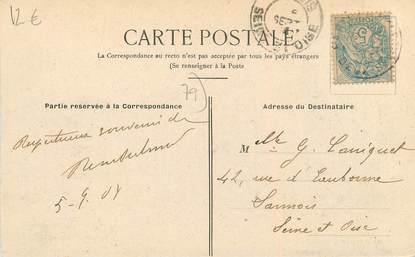 12 €
SEINE
OISE
CARTE POSTALE
La Correspondance au recto n'est pas acceptée par tous les pays étrangers
(Se renseigner à la Poste
79
Partie reservée à la Correspondance
Adresse du Destinataire
Respectueux souvenir de
5-9.04
Melle G.
42, rue d'
Sannois
Seine et Oise